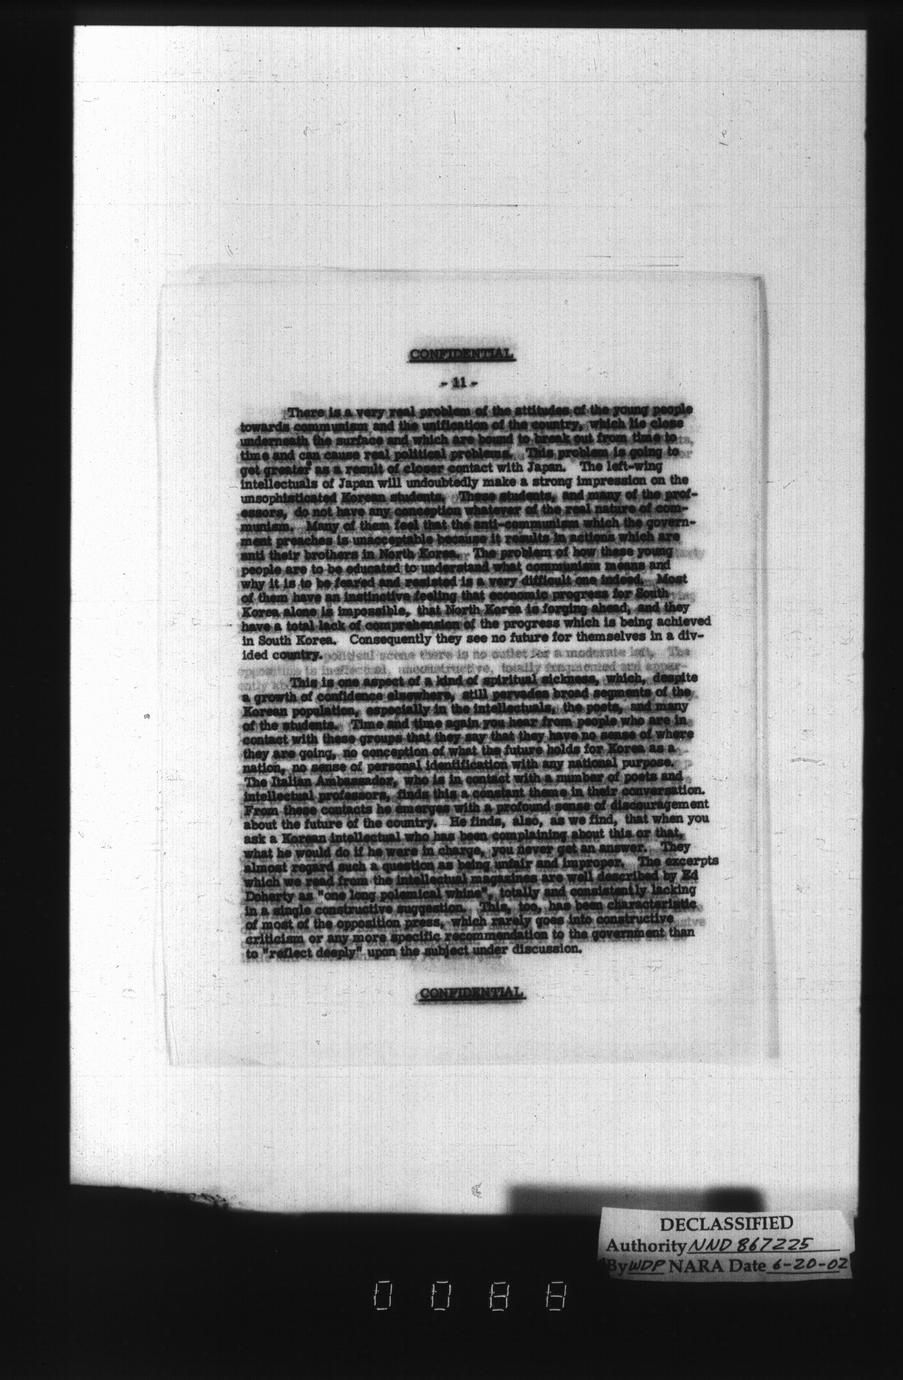 CONFIDENTIAL
- 11 -
There is a very real problem of the attitudes of the young people
towards communism and the unification of the country, which lie close
underneath the surface and which are bound to break out from time to
time and can cause real political problems. This problem is going to
get greater as a result of closer contact with Japan. The left-wing
intellectuals of Japan will undoubtedly make a strong impression on the
unsophisticated Korean students. These students, and many of the prof-
essors, do not have any conception whatever of the real nature of com-
munism. Many of them feel that the anti-communism which the govern-
ment preaches is unacceptable because it results in actions which are
anti their brothers in North Korea. The problem of how these young
people are to be educated to understand what communism means and
why it is to be feared and resisted is a very difficult one indeed. Most
of them have an instinctive feeling that economic progress for South
Korea alone is impossible, that North Korea is forging ahead, and they
have a total lack of comprehension of the progress which is being achieved
in South Korea. Consequently they see no future for themselves in a div-
ided country.
political scene there is no outlet for a moderate left. The
opposition is ineffectual, unconstructive, totally fragmented and
This is one aspect of a kind of spiritual sickness, which, despite
a growth of confidence elsewhere, still pervades broad segments of the
Korean population, especially in the intellectuals, the poets, and many
of the students. Time and time again you hear from people who are in
contact with these groups that they say that they have no sense of where
they are going, no conception of what the future holds for Korea as a
nation, no sense of personal identification with any national purpose.
The Italian Ambassador, who is in contact with a number of poets and
intellectual professors, finds this a constant theme in their conversation.
From these contacts he emerges with a profound sense of discouragement
about the future of the country. He finds, also, as we find, that when you
ask a Korean intellectual who has been complaining about this or that,
what he would do if he were in charge, you never get an answer. They
almost regard such a question as being unfair and improper. The excerpts
which we read from the intellectual magazines are well described by Ed
Doherty as "one long polemical whine", totally and consistently lacking
in a single constructive suggestion. This, too, has been characteristic
of most of the opposition press, which rarely goes into constructive
criticism or any more specific recommendation to the government than
to "reflect deeply" upon the subject under discussion.
CONFIDENTIAL
DECLASSIFIED
Authority NND 867225
By WDP NARA Date 6-20-02
0 0 8 8